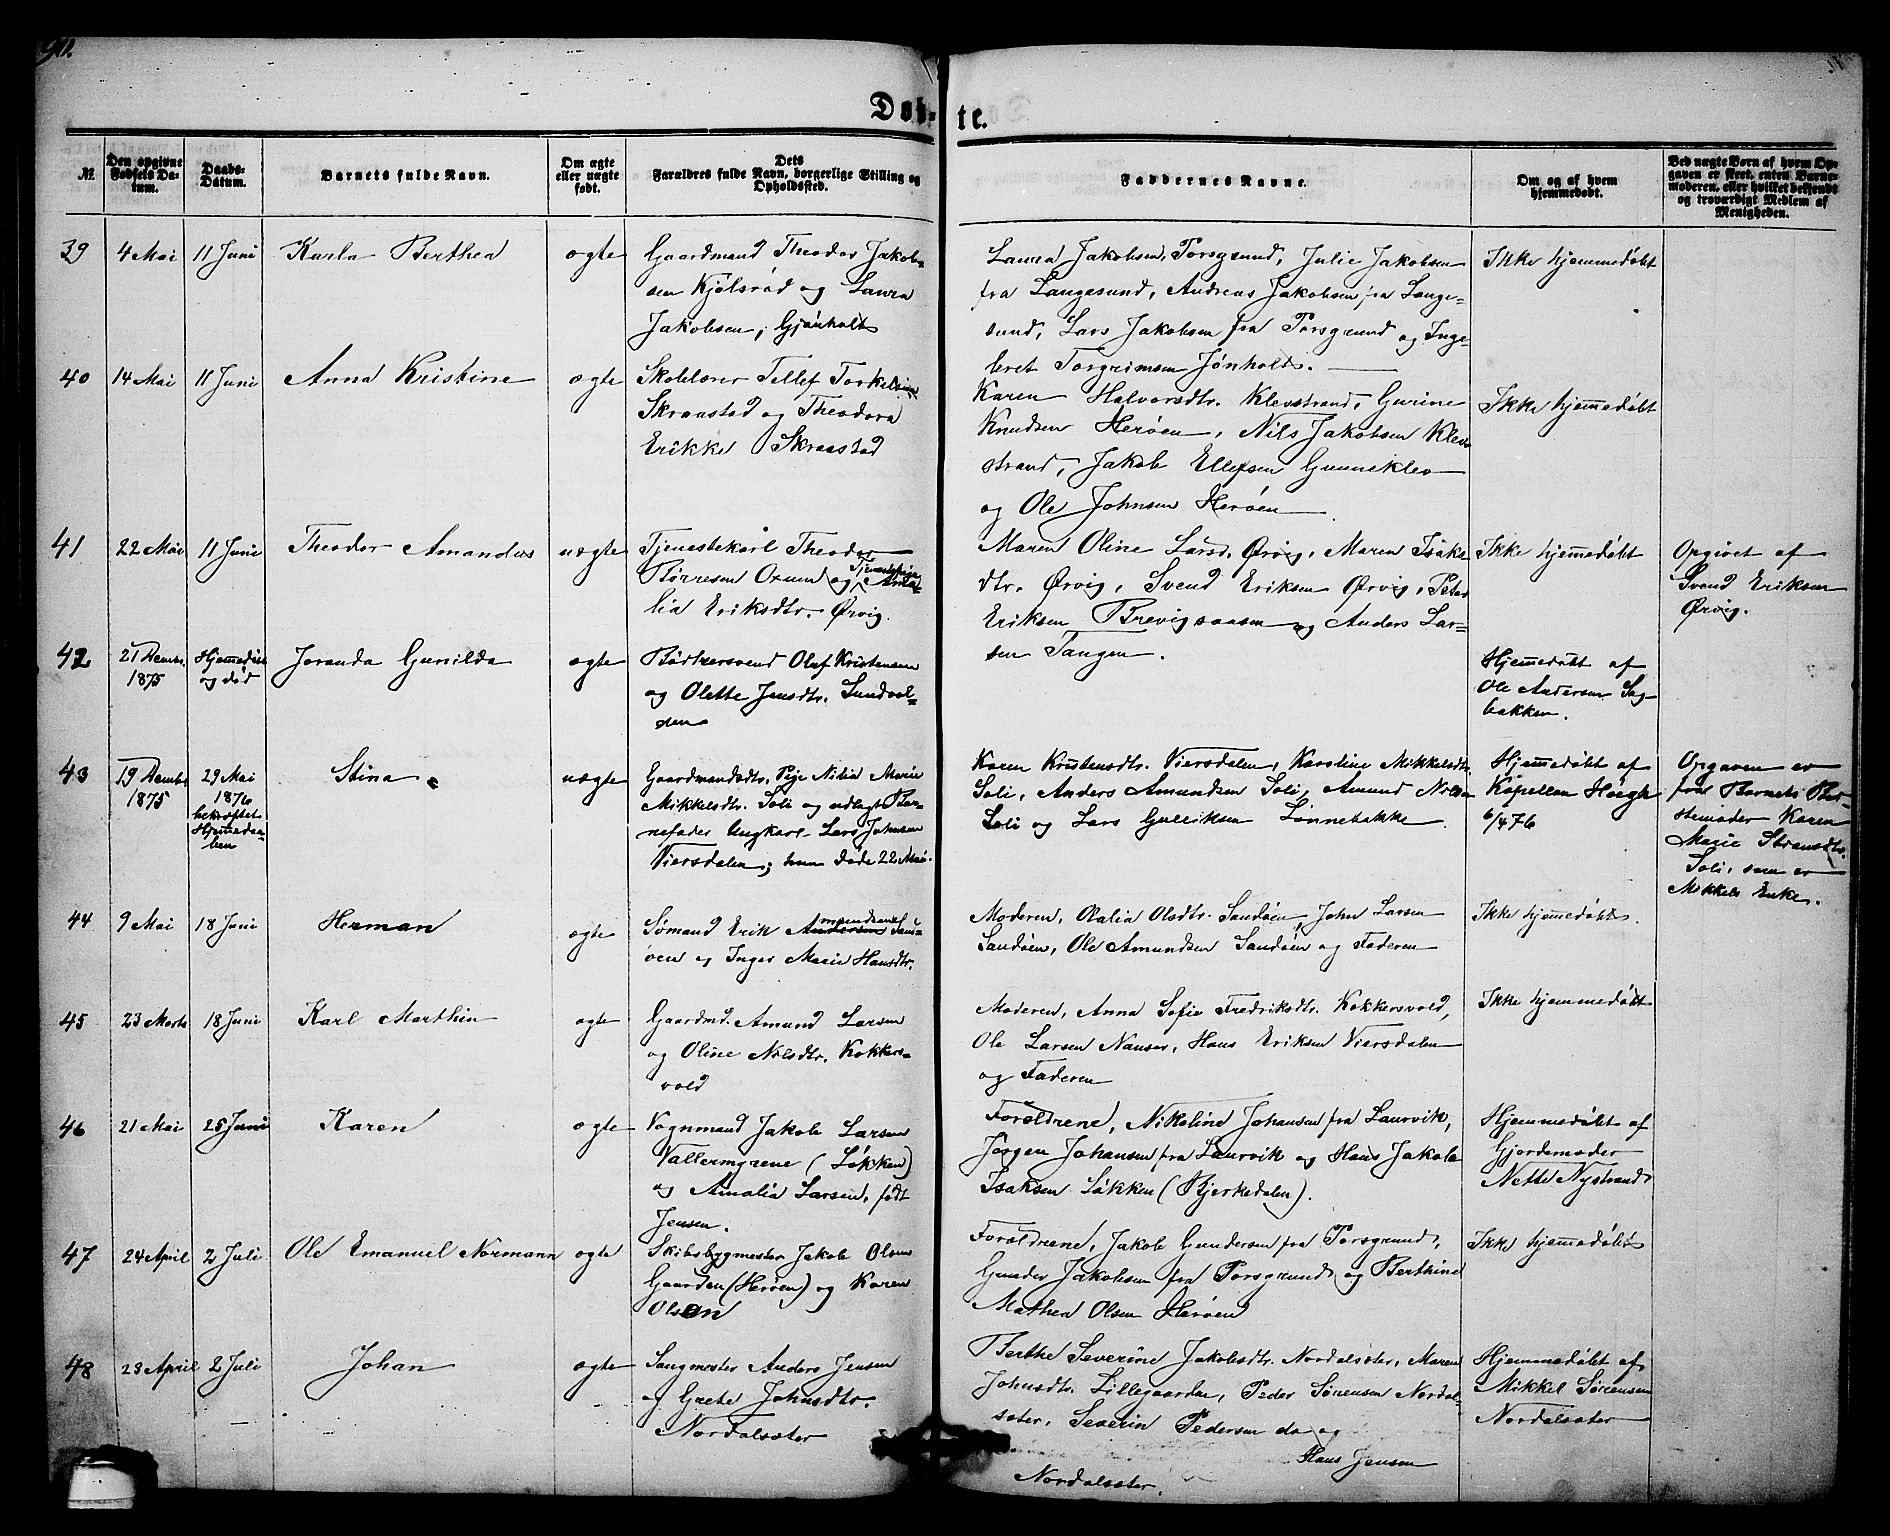 90.
Døb-te.
№
Den opgivne Fødsels Datum.
Daabs-Datum.
Barnets fulde Navn.
Om ægte eller uægte født.
Dets Forældres fulde Navn, borgerlige Stilling og Opholdssted.
Faddernes Navne.
Om og af hvem hjemmedøbt.
Ved uægte Børn af hvem Opgaven er skeet, enten Barnemoderen, eller hvilket bekjendt og troværdigt Medlem af Menigheden.
39 4 Mai 11 Juni Karla Berthea ægte
Gaardmand Theodor Jakob-
sen Kjølsrød og Laura
Jakobsen, Gjønholt
Laura Jakobsen, Porsgrund, Julie Jakobsen
fra Langesund, Andreas Jakobsen fra Lange-
sund, Lars Jakobsen fra Porsgrund og Inge-
beret Torgrimsen Jønholt.
Ikke hjemmedøbt
40 14 Mai 11 Juni Anna Kristine ægte
Skolelærer Tellef Torkelsen
Skraastad og Theodora
Erikke Skraastad
Karen Halvorsdtr. Klevstrand, Gurine
Knudsen Herøen, Nils Jakobsen Klev-
strand, Jakob Ellefsen Gunneklev
og Ole Johnsen Herøen
Ikke hjemmedøbt
41 22 Mai 11 Juni Theodor Amandus uægte
Tjenestekarl Theodor
Børresen Oxum og Tjenestepige Ama-
lia Eriksdtr. Ørvig.
Maren Oline Larsd. Ørvig, Maren Isaks-
dtr. Ørvig, Svend Eriksen Ørvig, Peter
Eriksen Brevigsaasen og Anders Lar-
sen Tangen.
Ikke hjemmedøbt
Opgivet af
Svend Eriksen
Ørvig.
42 21 Dembr. 1875 Hjemmedøbt og død Joranda Gunilda ægte
Bødkersvend Oluf Kristensen
og Olette Jensdtr. Sundvol-
den
Hjemmedøbt af
Ole Andersen Sag-
bakken.
43 19 Dembr. 1875
29 Mai
1876
bekræftet
Hjemmedaa-
ben
Stina uægte
Gaardmandsdtr. Pige Nilia Marie
Mikkelsdtr. Soli og udlagt Bar-
nefader Ungkarl Lars Johnsen
Viersdalen; hun døde 22 Mai.
Karen Kristensdtr. Viersdalen, Karoline Mikkelsdtr.
Soli, Anders Amundsen Soli, Amund Nilsen
Soli og Lars Gulliksen Lønnebakke
Hjemmedøbt af
Kapellan Høegh
6/4 76
Opgaven er
fra Barnets Bed-
stemoder Karen
Marie
Soli, som er
Mikkels Enke.
44 9 Mai 18 Juni Herman ægte
Sømand Erik Amundsen San-
øen og Inger Marie Hansdtr.
Moderen, Olalia Olsdtr. Sandøen, John Larsen
Sandøen, Ole Amundsen Sandøen og Faderen
Ikke hjemmedøbt.
45 23 Marts 18 Juni Karl Marthin ægte
Gaardmd. Amund Larsen
og Oline Nilsdtr. Kokkers-
vold
Moderen, Anna Sofie Fredriksdtr. Kokkersvold,
Ole Larsen Nanset, Hans Eriksen Viersdalen
og Faderen
Ikke hjemmedøbt
46 21 Mai 25 Juni Karen ægte
Vognmand Jakob Larsen
Vallermyrene (Løkken)
og Amalia Larsen, født
Jensen.
Forældrene, Nikoline Johansen fra Laurvik,
Jørgen Johansen fra Laurvik og Hans Jakob
Isaksen Løkken (Bjerkedalen).
Hjemmedøbt af
Gjordemoder
Nette Nystrand
47 24 April 2 Juli Ole Emanuel Normann ægte
Skibsbygmester Jakob Olsen
Gaarden (Herøen) og Karen
Olsen
Forældrene, Jakob Gundersen fra Porsgrund,
Gunder Jakobsen fra Porsgrund og Berthine
Mathea Olsen Herøen
Ikke hjemmedøbt
48 23 April 2 Juli Johan ægte
Saugmester Anders Jensen
og Grete Johnsdtr.
Nordalsæter
Berthe Severine Jakobsdtr. Nordalsæter, Maren
Johnsdtr. Lillegaarden, Peder Sørensen Nordal-
sæter, Severin Pedersen do og
Hans Jensen
Nordalsæter.
Hjemmedøbt af
Mikkel Sørensen
Nordalsæter